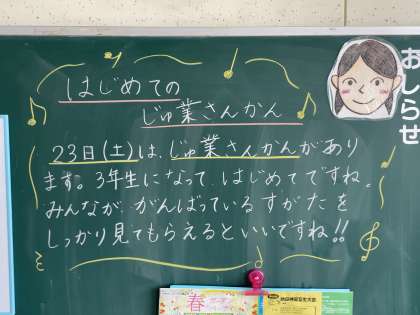 はじめての
じゅ業さんかん
23日(土)は、じゅ業さんかんがあり
ます。3年生になって、はじめてですね。
みんなが、がんばっているすがたを
しっかり見てもらえるといいですね!!
おしらせ
春